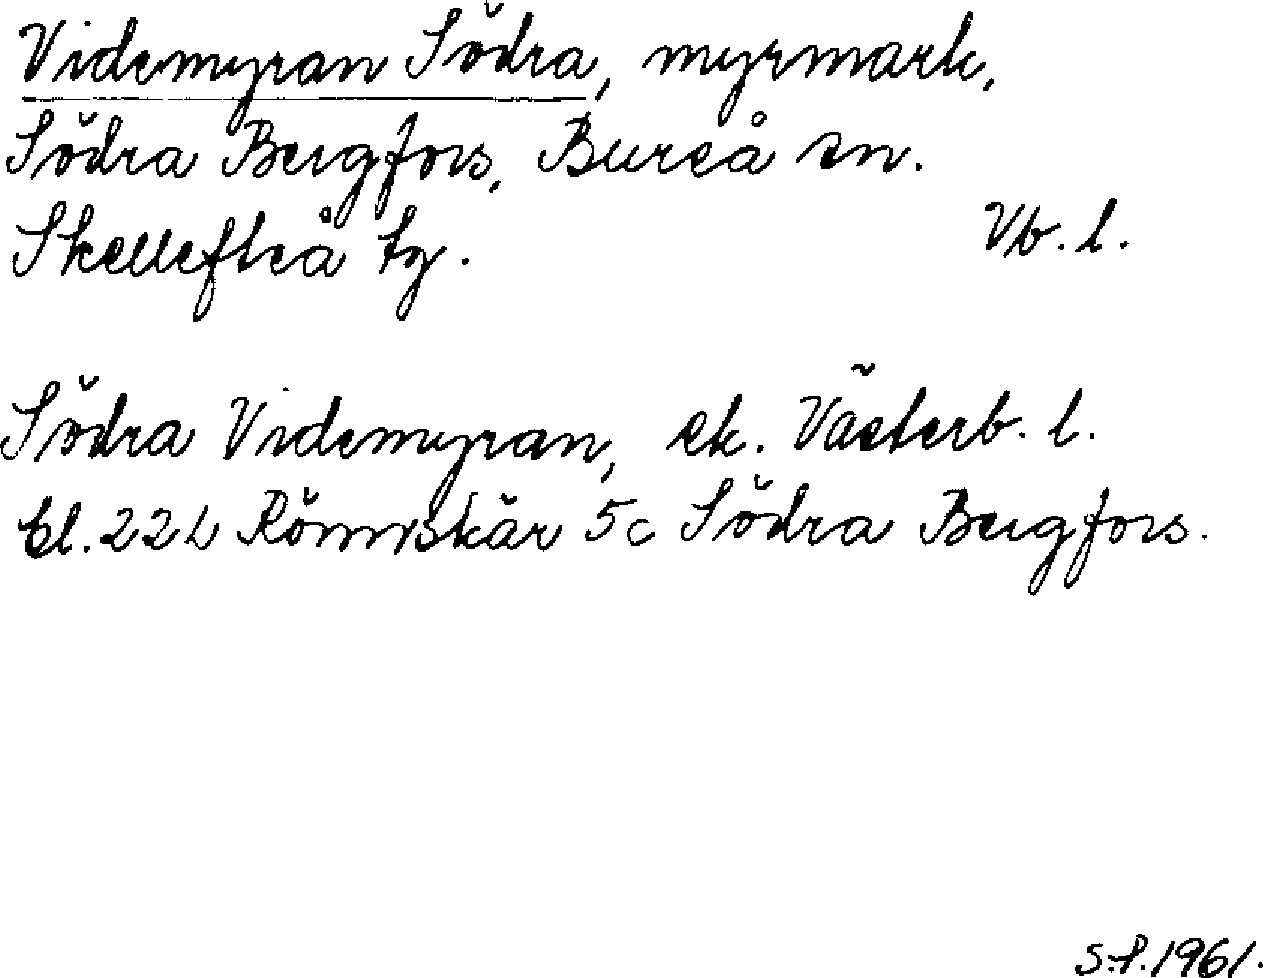 Videmyran Södra, myrmark,
Södra Bergfors, Bureå sn.
Skellefteå tg. Vb. l.
Södra Videmyran, ek. Västerb. l.
bl. 22L Rönnskär 5c Södra Bergfors.
S.P. 1961.